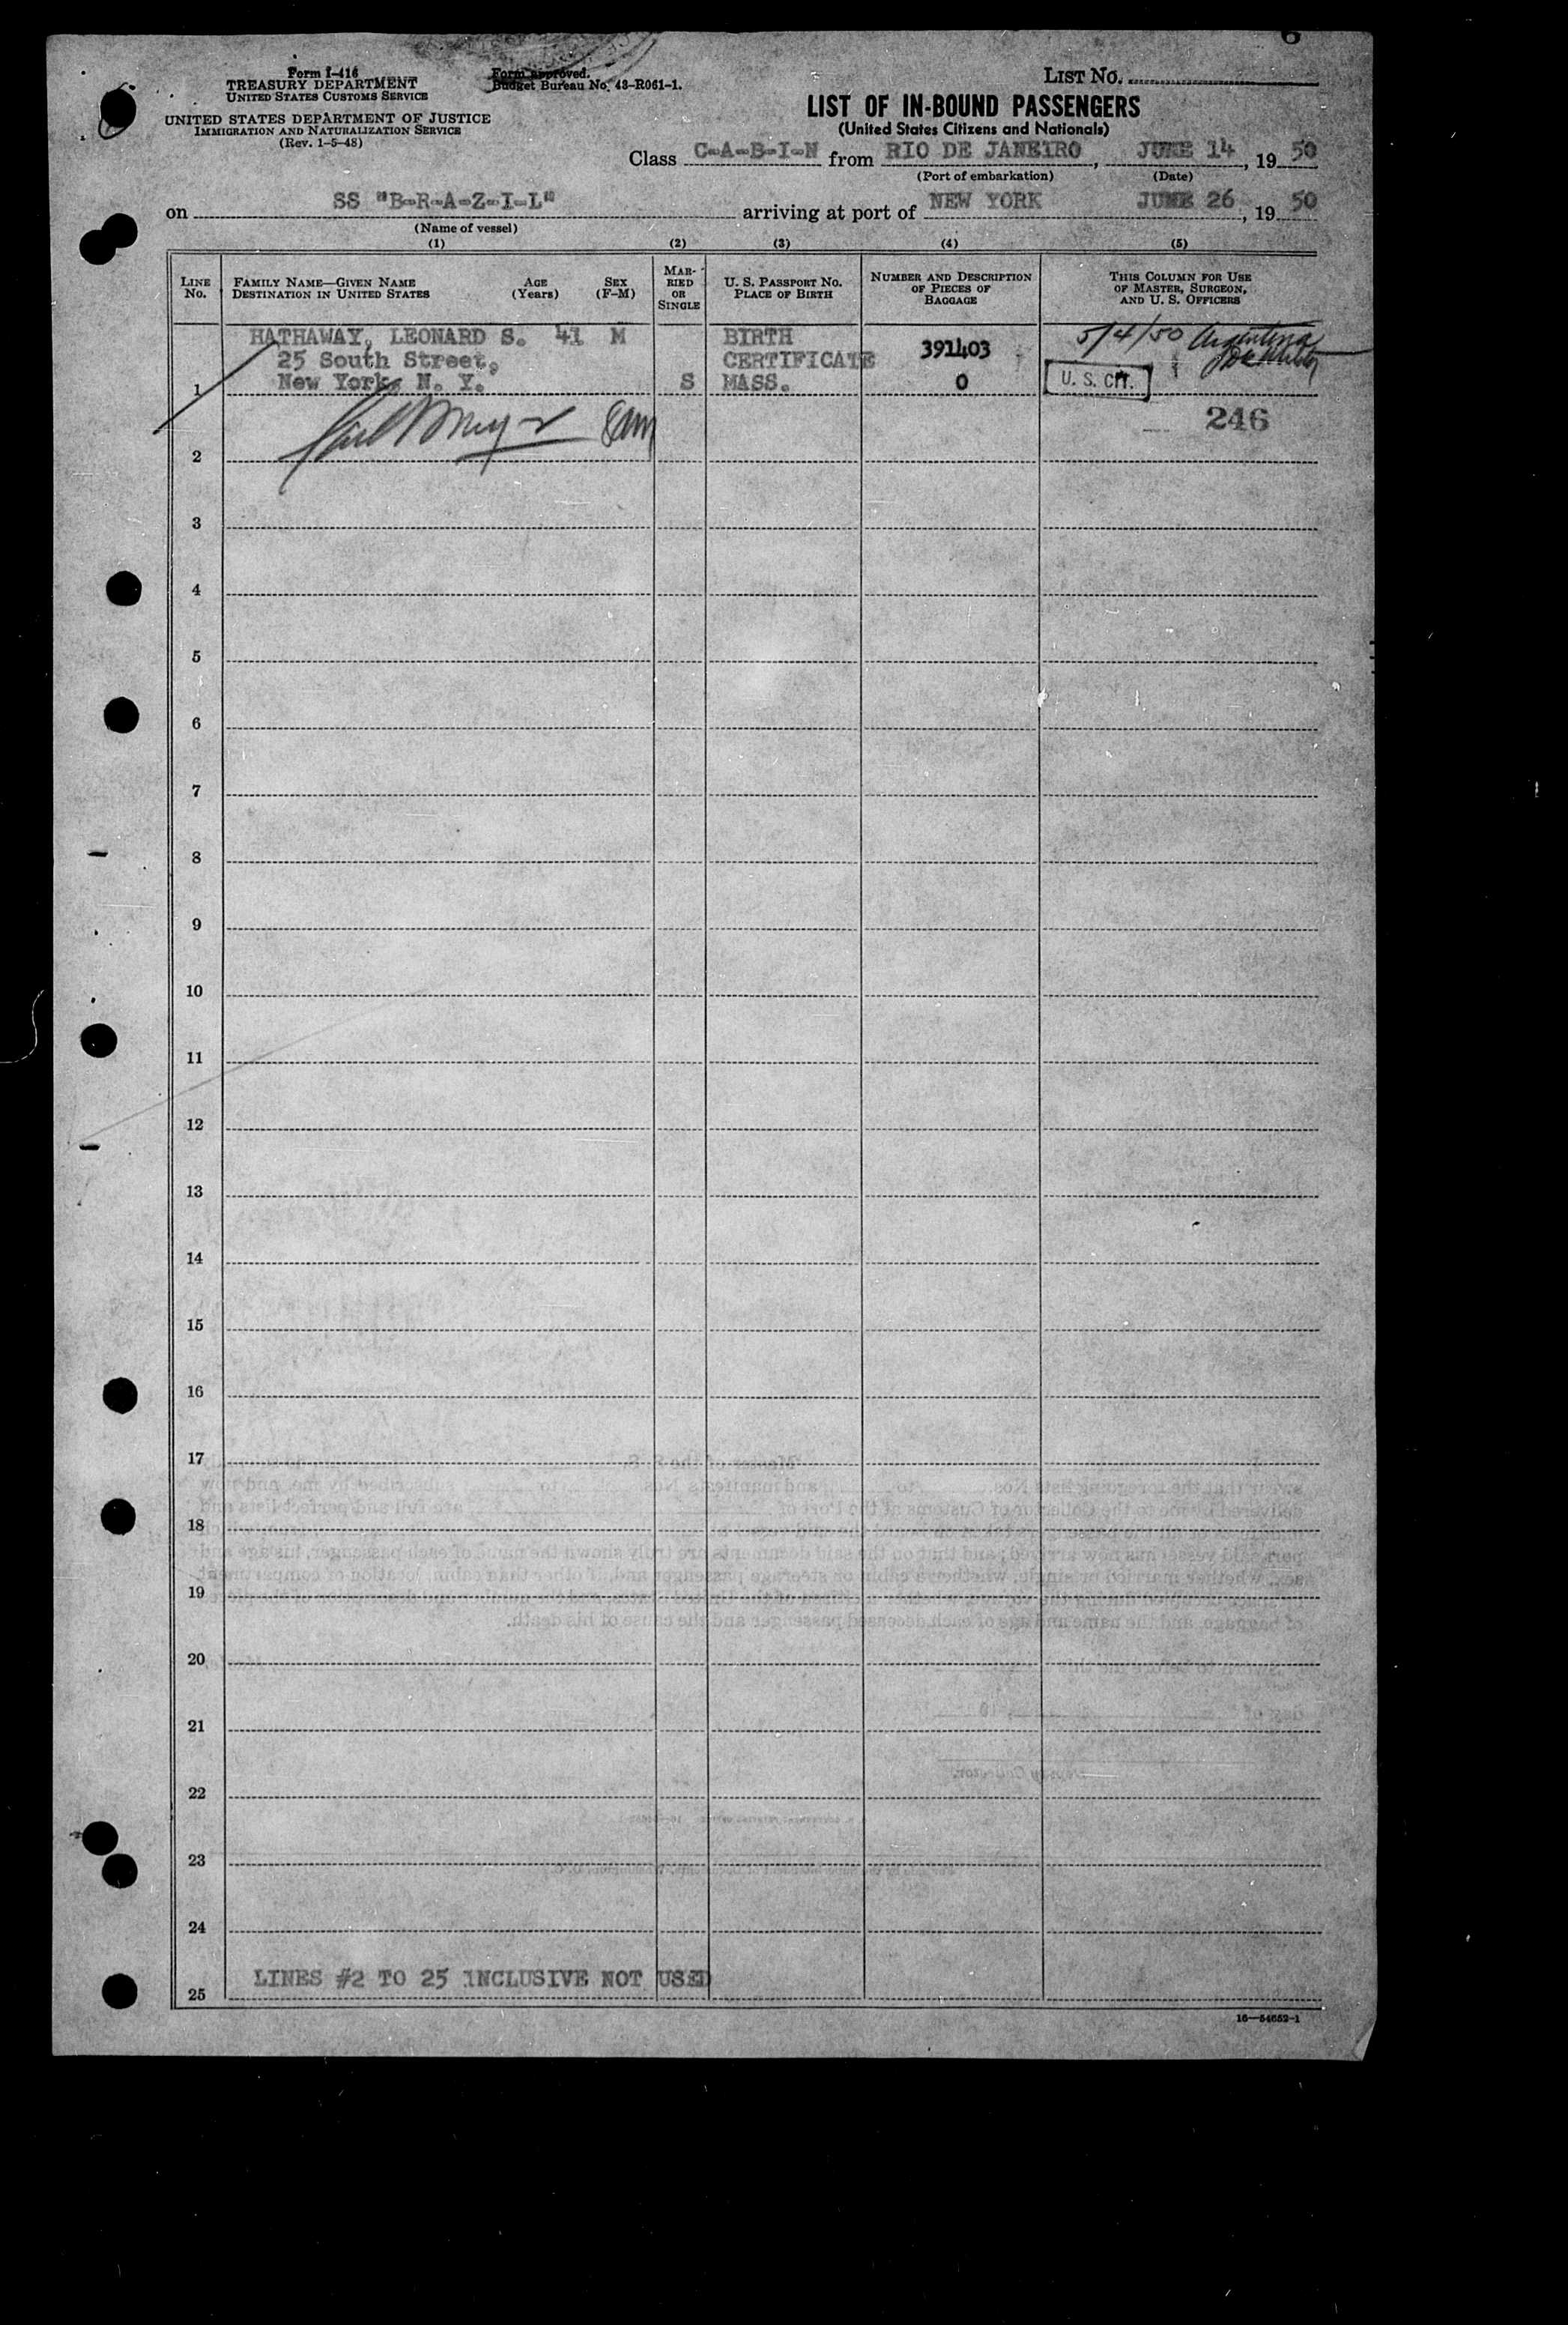 6
Form I-416
TREASURY DEPARTMENT
UNITED STATES CUSTOMS SERVICE
UNITED STATES DEPARTMENT OF JUSTICE
IMMIGRATION AND NATURALIZATION SERVICE
(Rev. 1-5-48)
Form approved.
Budget Bureau No. 43-R061-1.
LIST NO.
LIST OF IN-BOUND PASSENGERS
(United States Citizens and Nationals)
Class C-A-B-I-N from RIO DE JANEIRO, JUNE 14, 19 50
(Port of embarkation) (Date)
on SS "B-R-A-Z-I-L" arriving at port of NEW YORK JUNE 26, 19 50
(Name of vessel)
(1) (2) (3) (4) (5)
LINE No.
FAMILY NAME—GIVEN NAME DESTINATION IN UNITED STATES
AGE (Years)
SEX (F-M)
MARRIED OR SINGLE
U. S. PASSPORT NO. PLACE OF BIRTH
NUMBER AND DESCRIPTION OF PIECES OF BAGGAGE
THIS COLUMN FOR USE OF MASTER, SURGEON, AND U. S. OFFICERS
HATHAWAY, LEONARD S. 41 M BIRTH 391403 5/4/50 Argentina
25 South Street, CERTIFICATE
1 New York, N. Y. S MASS. 0 U. S. CIT.
246
2
3
4
5
6
7
8
9
10
11
12
13
14
15
16
17
18
19
20
21
22
23
24
LINES #2 TO 25 INCLUSIVE NOT USED
25
16—54652-1